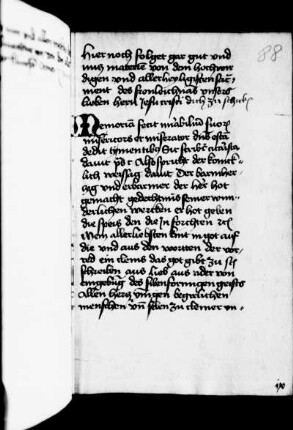 88
Hier noch folget gar gut und
nucz materie von dem hochwir
digen und allerheyligisten sacra
ment des fronleichnas unsers
lieben hern Jesu cristi
Memoriam fecit mirabiliu suor
misericors et miserator dns
dedit timentibus Sic scribit
davit Also spricht der konick
lich weissag davit Der barmher
czig und erbarmer der her hot
gemacht gedechtnus seiner wun
derlichen wercken er hot geben
die speis den die in forchten
Mein allerliebsten kint in got auf
die und aus den worten der vor
red ein clein das got gibt zu
schreiben aus lieb aus oder von
eingebung des sibenformigen geists
Allen hercz begirlichen
menschen und selen zu einer